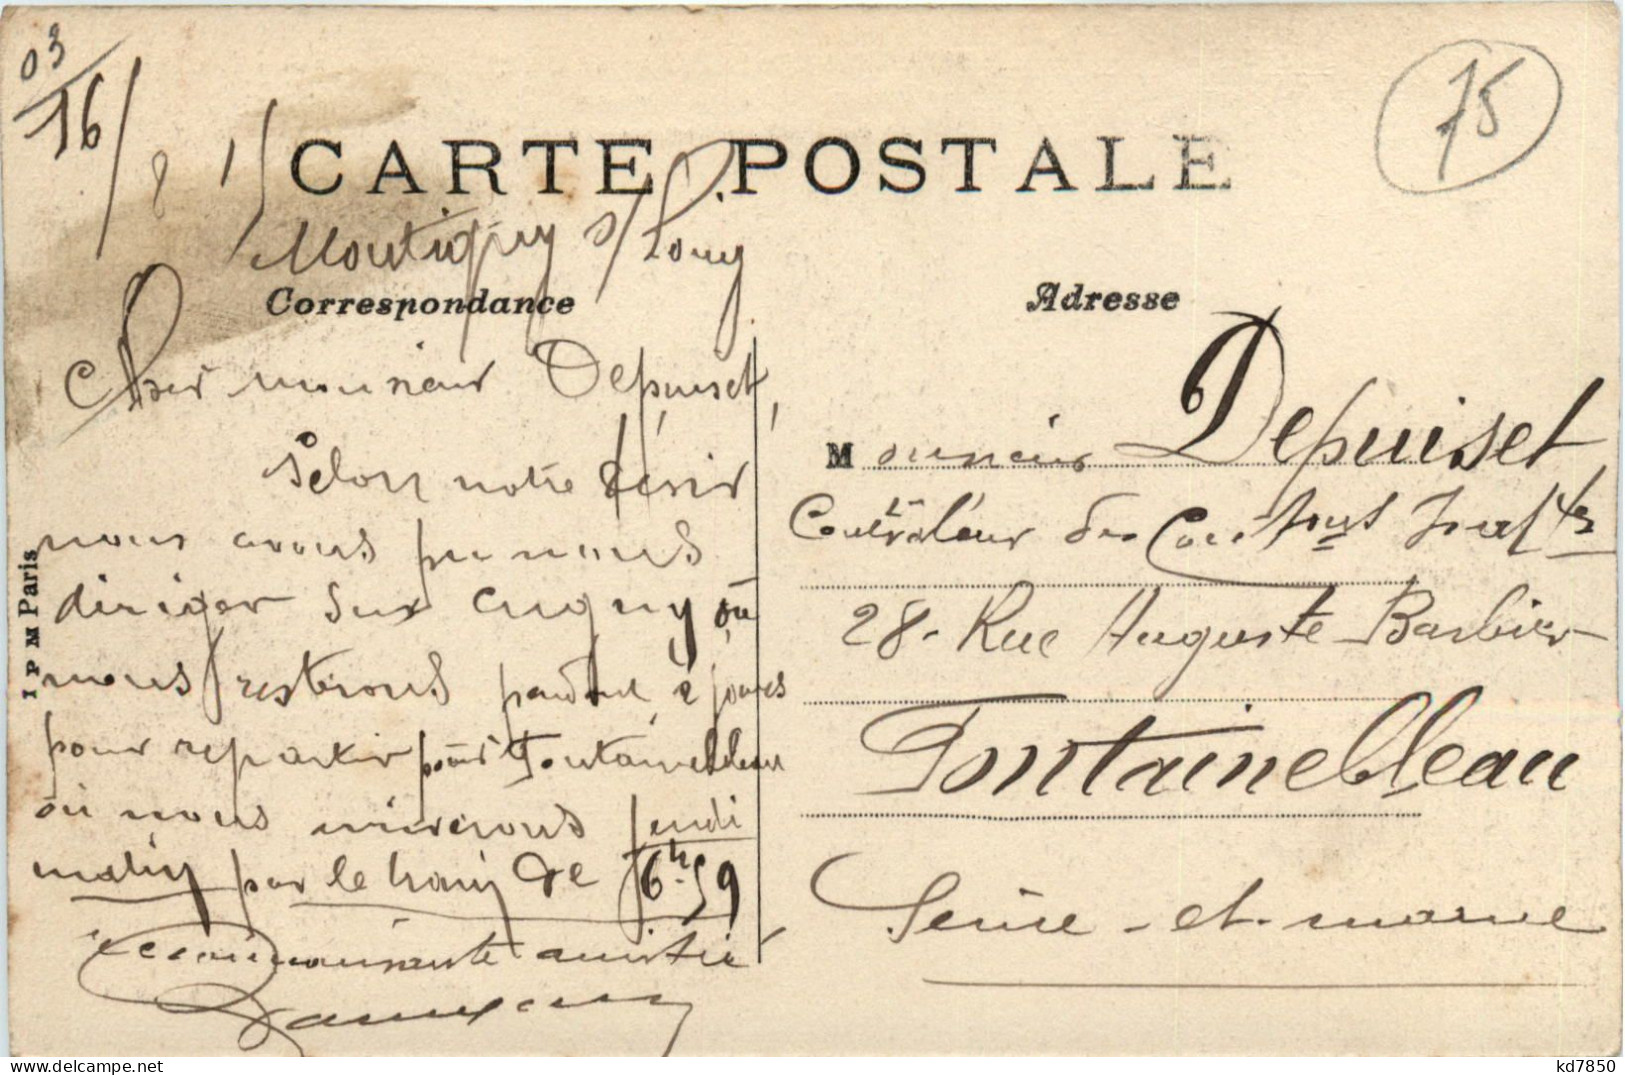 03
16/8 1
75
CARTE POSTALE
Montigny s/ Loing
Correspondance
Cher monsieur Depuiset,
Selon notre désir
nous avons pu nous
diriger sur Cugny où
nous resterons pendant 2 jours
pour repartir pour Fontainebleau
où nous arriverons jeudi
matin par le train de 6h.59
reconnaissante amitié
Adresse
Monsieur Depuiset
Contrôleur des Contons
28. Rue Auguste Barbier
Fontainebleau
Seine-et-marne
I P M Paris
kd7850